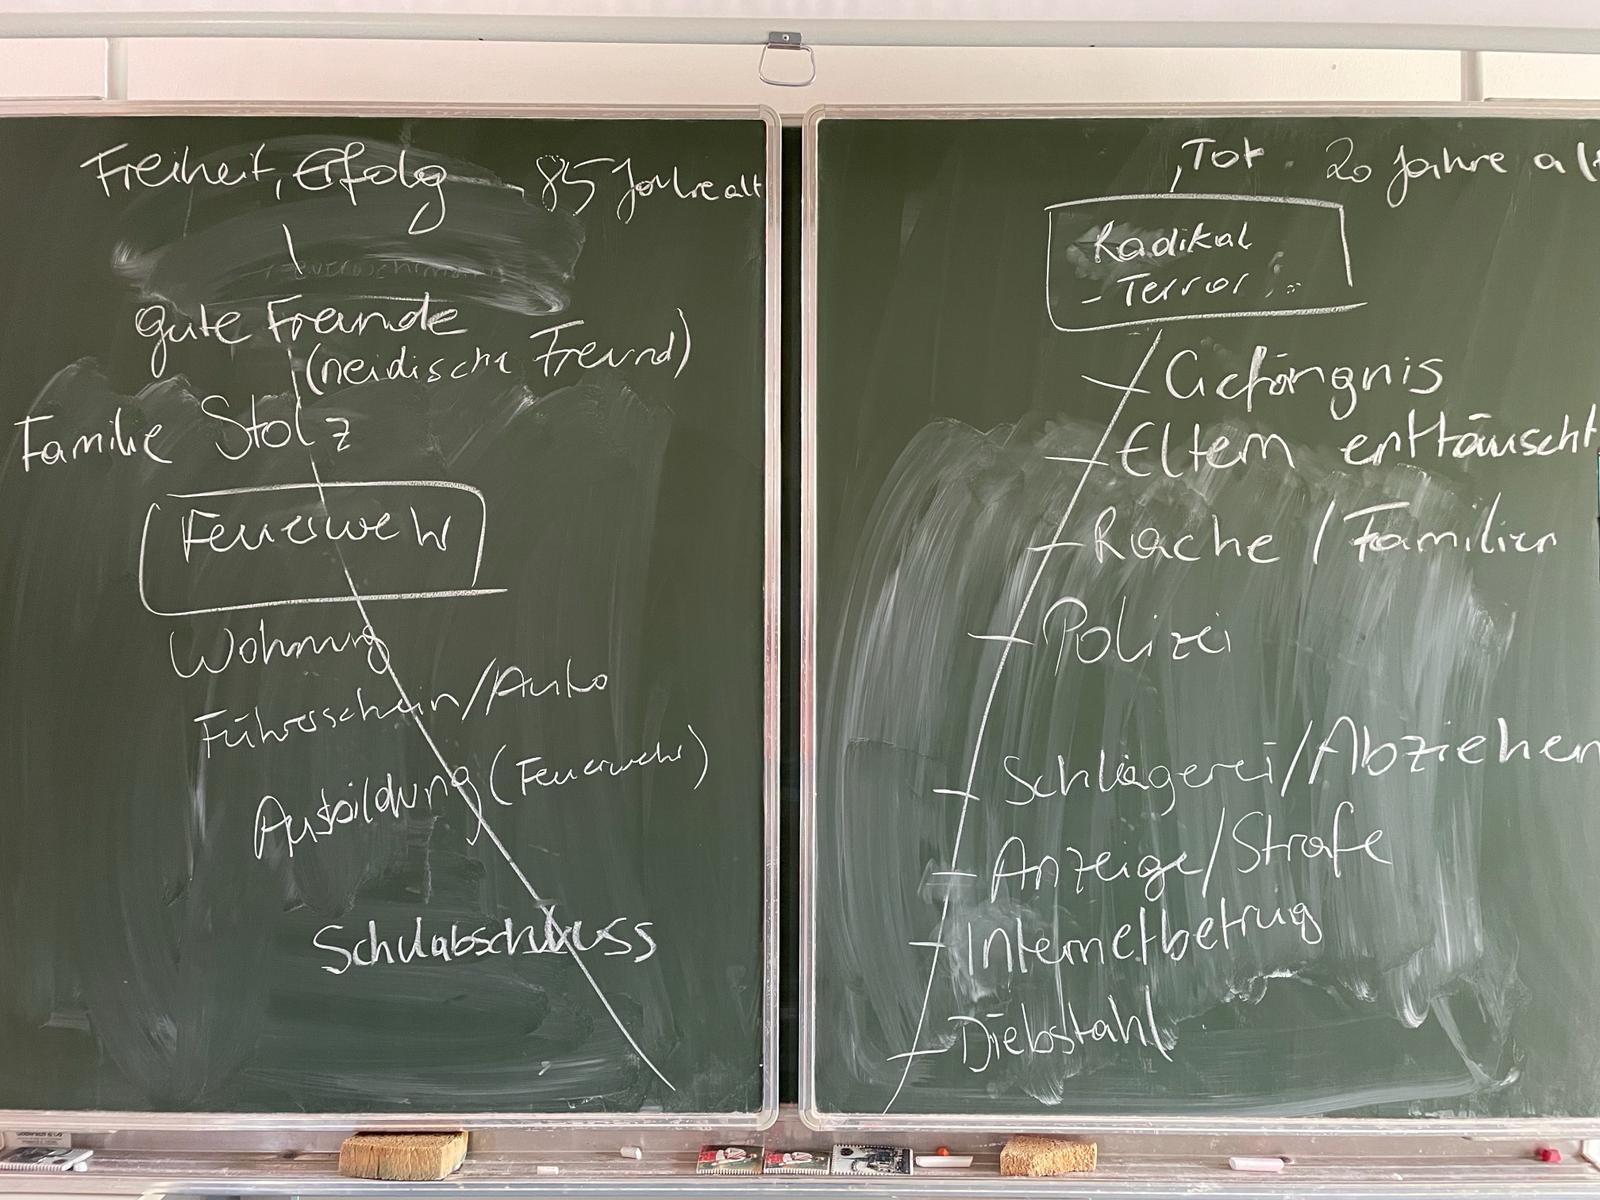 Freiheit, Erfolg 85 Jahre alt
gute Freunde
(neidische Freund)
Familie Stolz
Feuerwehr
Wohnung
Führerschein/Auto
Ausbildung (Feuerwehr)
Schulabschluss
Tot 20 Jahre alt
Radikal
- Terror
Gefängnis
Eltern enttäuscht
Rache / Familien
Polizei
Schlägerei/Abziehen
Anzeige/Strafe
Internetbetrug
Diebstahl